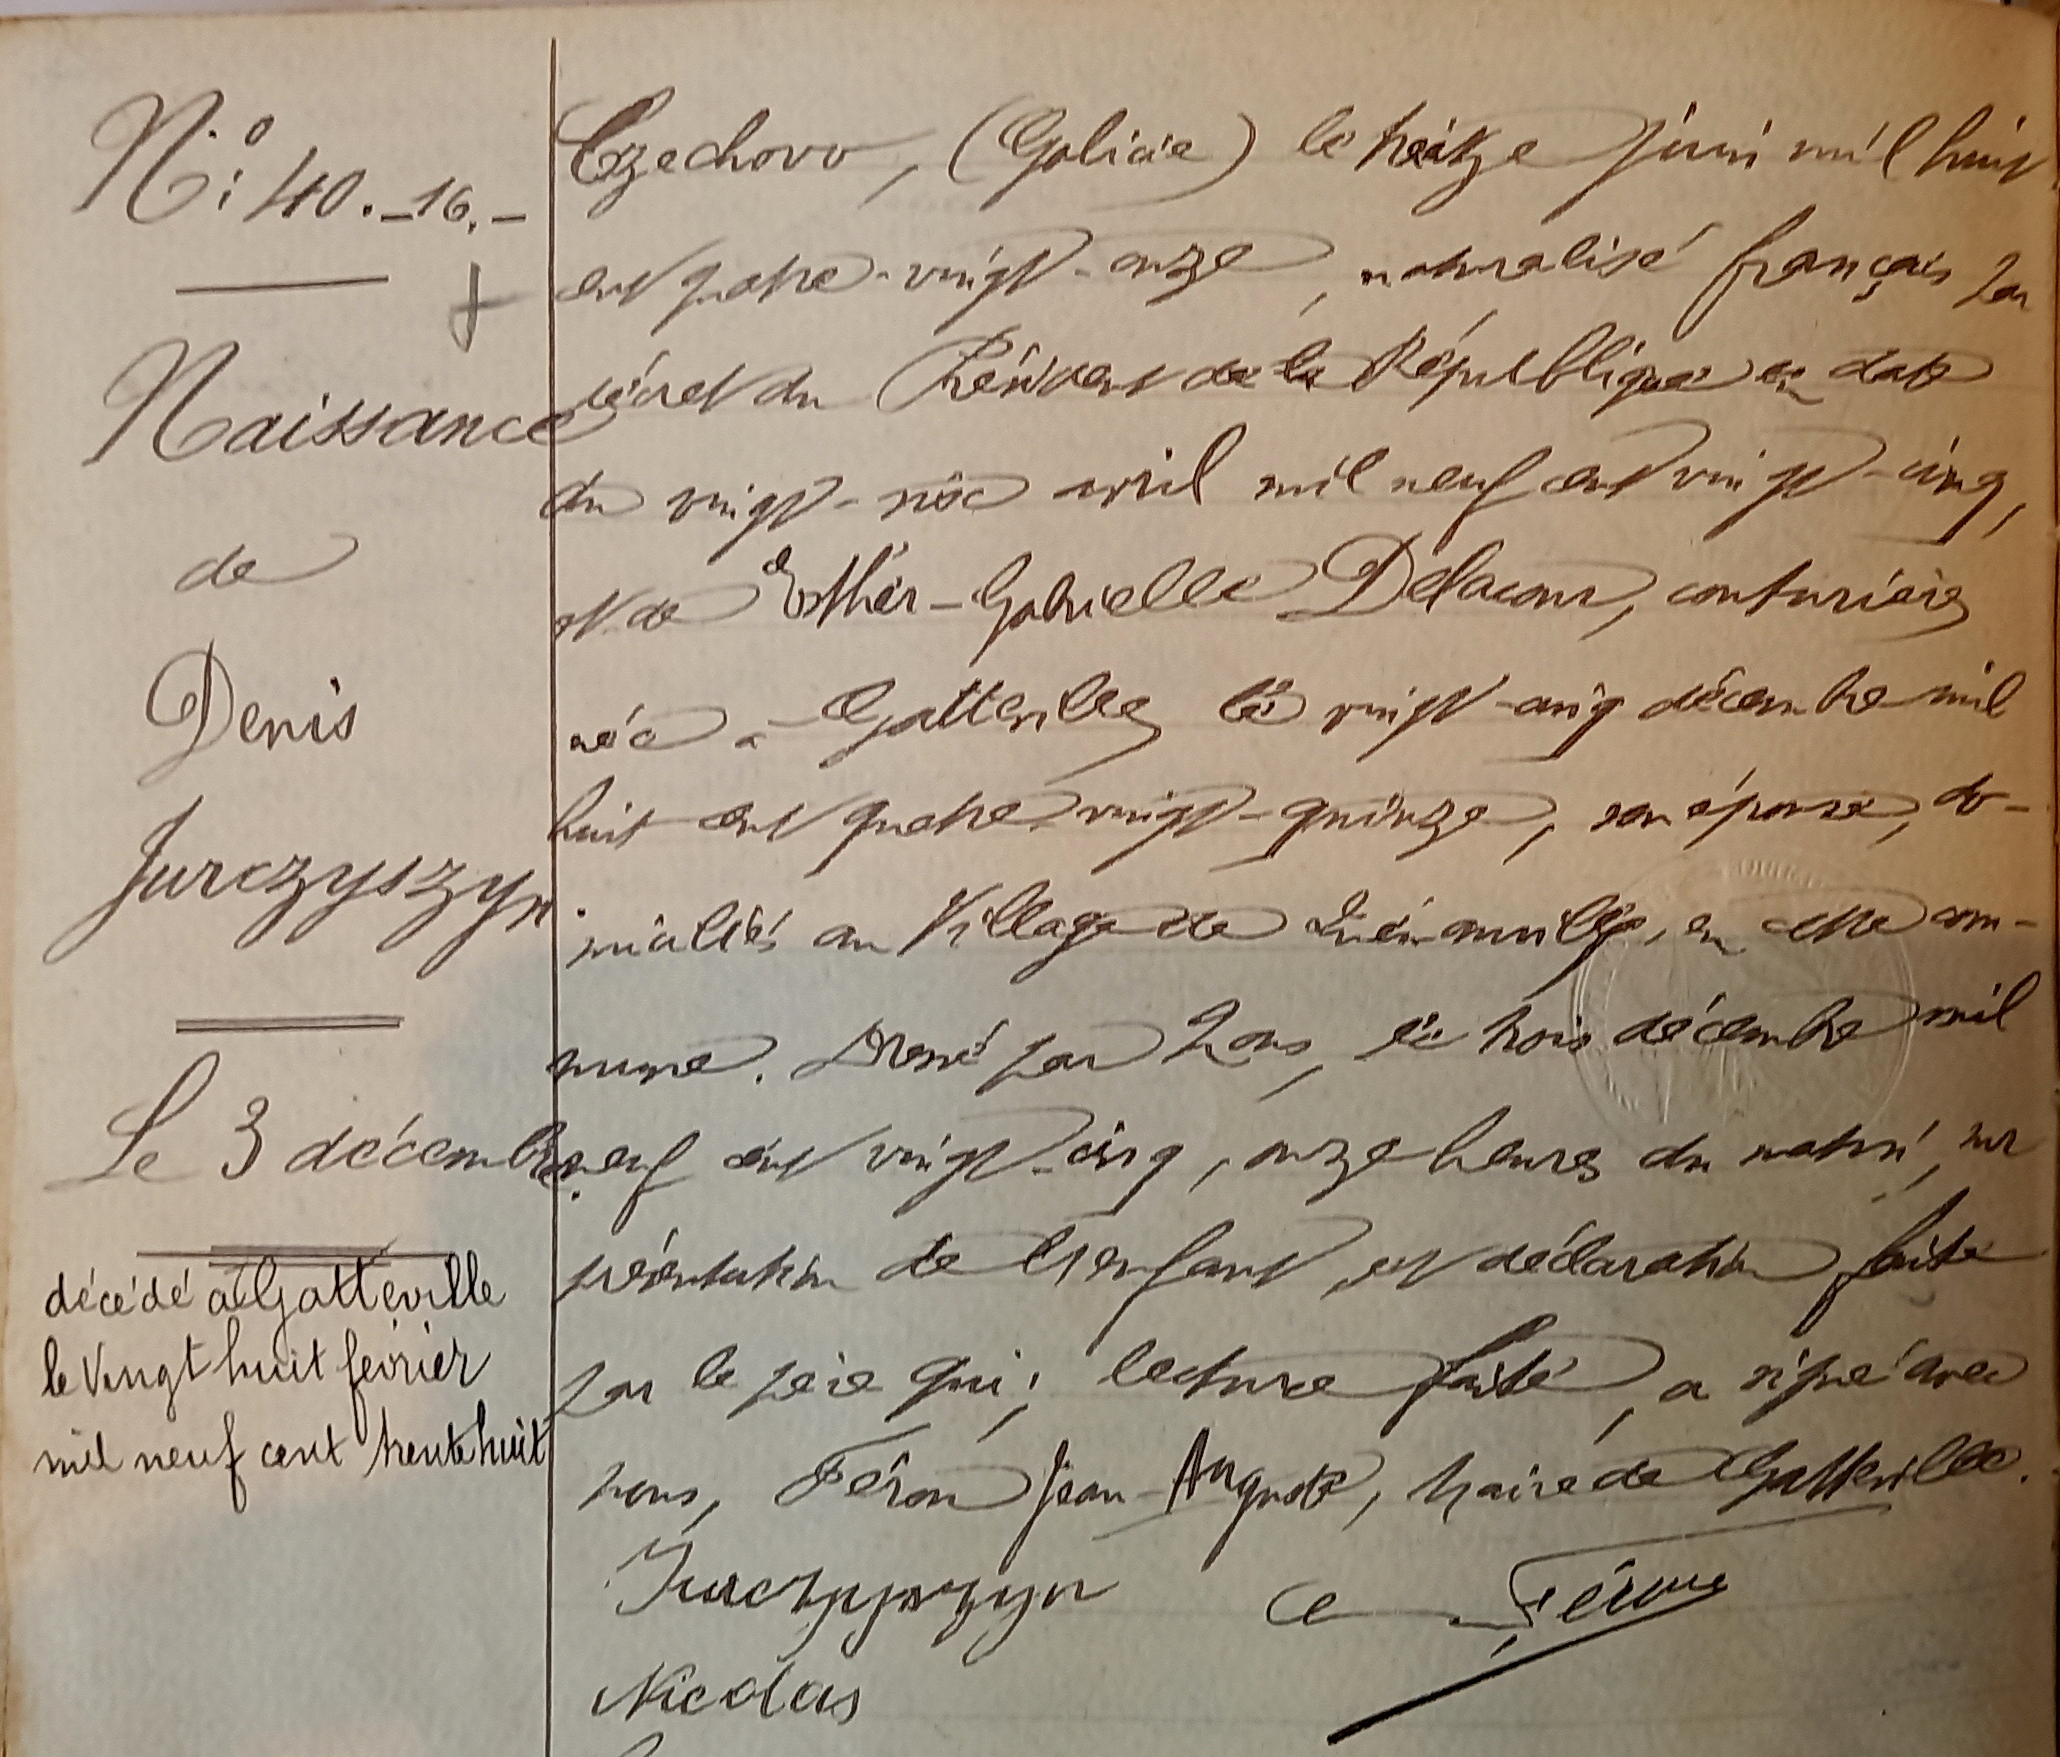 N.º : 40. _ 16. _
Naissance
de
Denis
Jurczyszyn
Le 3 décembre.
décédé à Gatteville
le vingt huit février
mil neuf cent trente huit
Czechovo, (Galicie) le treize juin mil huit
cent quatre-vingt-onze, naturalisé français par
décret du Président de la République en date
du vingt-six avril mil neuf cent vingt-cinq,
et de Esther-Gabrielle Delacour, couturière,
née à Gatteville, le vingt-cinq décembre mil
huit cent quatre-vingt-quinze, son épouse, do-
miciliés au Village de, en cette com-
mune. Dressé par Nous, le trois décembre mil
neuf cent vingt-cinq, onze heures du matin, sur
présentation de l'enfant et déclaration faite
par le père qui, lecture faite, a signé avec
nous, Féron Jean-Auguste, Maire de Gatteville.
Jurczyszyn
Nicolas
Féron